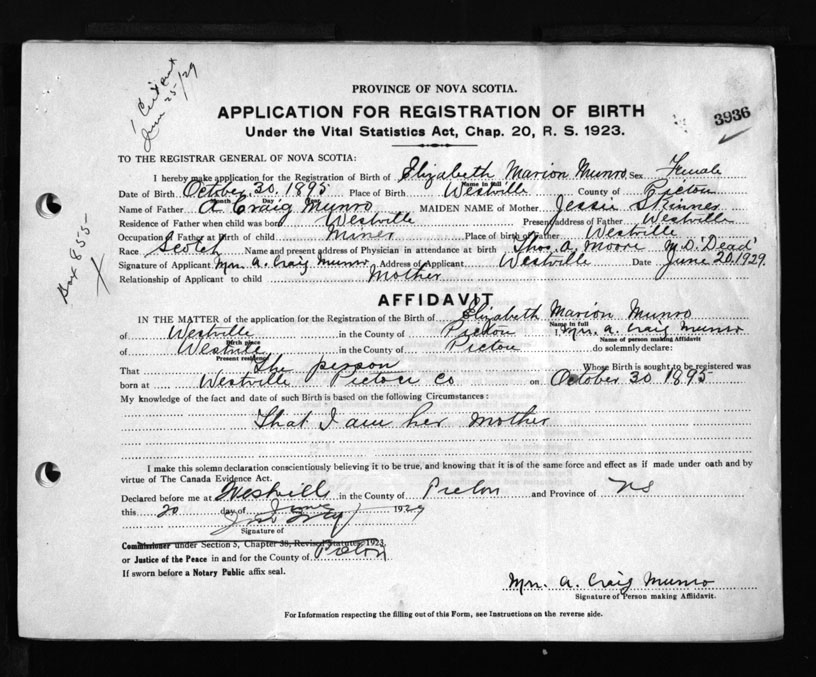 June 25-/29
PROVINCE OF NOVA SCOTIA.
APPLICATION FOR REGISTRATION OF BIRTH
3936
Under the Vital Statistics Act, Chap. 20, R. S. 1923.
TO THE REGISTRAR GENERAL OF NOVA SCOTIA:
I hereby make application for the Registration of Birth of Elizabeth Marion Munro Sex Female
Name in full
Date of Birth October 30, 1895 Place of Birth Westville County of Pictou
Month Day Year
Name of Father A Craig Munro MAIDEN NAME of Mother Jessie Skinner
Residence of Father when child was born Westville Present Address of Father Westville
Occupation of Father at Birth of child Miner Place of birth of Father Westville
Race Scotch Name and present address of Physician in attendance at birth Thos. A. Moore M.D. 'Dead'
Signature of Applicant Mrs. A. Craig Munro Address of Applicant Westville Date June 20, 1929.
Relationship of Applicant to child Mother
Box 855-
AFFIDAVIT
IN THE MATTER of the application for the Registration of the Birth of Elizabeth Marion Munro
Name in full
of Westville in the County of Pictou I, Mrs. A. Craig Munro
Birth place Name of person making Affidavit
of Westville in the County of Pictou do solemnly declare:
Present residence
That the person Whose Birth is sought to be registered was
born at Westville Pictou Co on October 30 1895
My knowledge of the fact and date of such Birth is based on the following Circumstances:
That I am her Mother
I make this solemn declaration conscientiously believing it to be true, and knowing that it is of the same force and effect as if made under oath and by
virtue of The Canada Evidence Act.
Declared before me at Westville in the County of Pictou and Province of NS
this 20 day of June 1929
Signature of
Commissioner under Section 5, Chapter 38, Revised Statutes 1923
or Justice of the Peace in and for the County of Pictou
If sworn before a Notary Public affix seal.
Mrs. A. Craig Munro
Signature of Person making Affidavit.
For Information respecting the filling out of this Form, see Instructions on the reverse side.